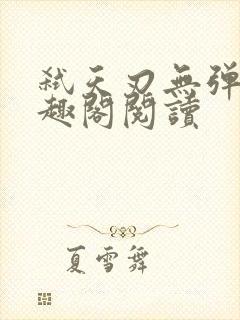 弒天刃無彈
趣閣閱讀
夏雪舞